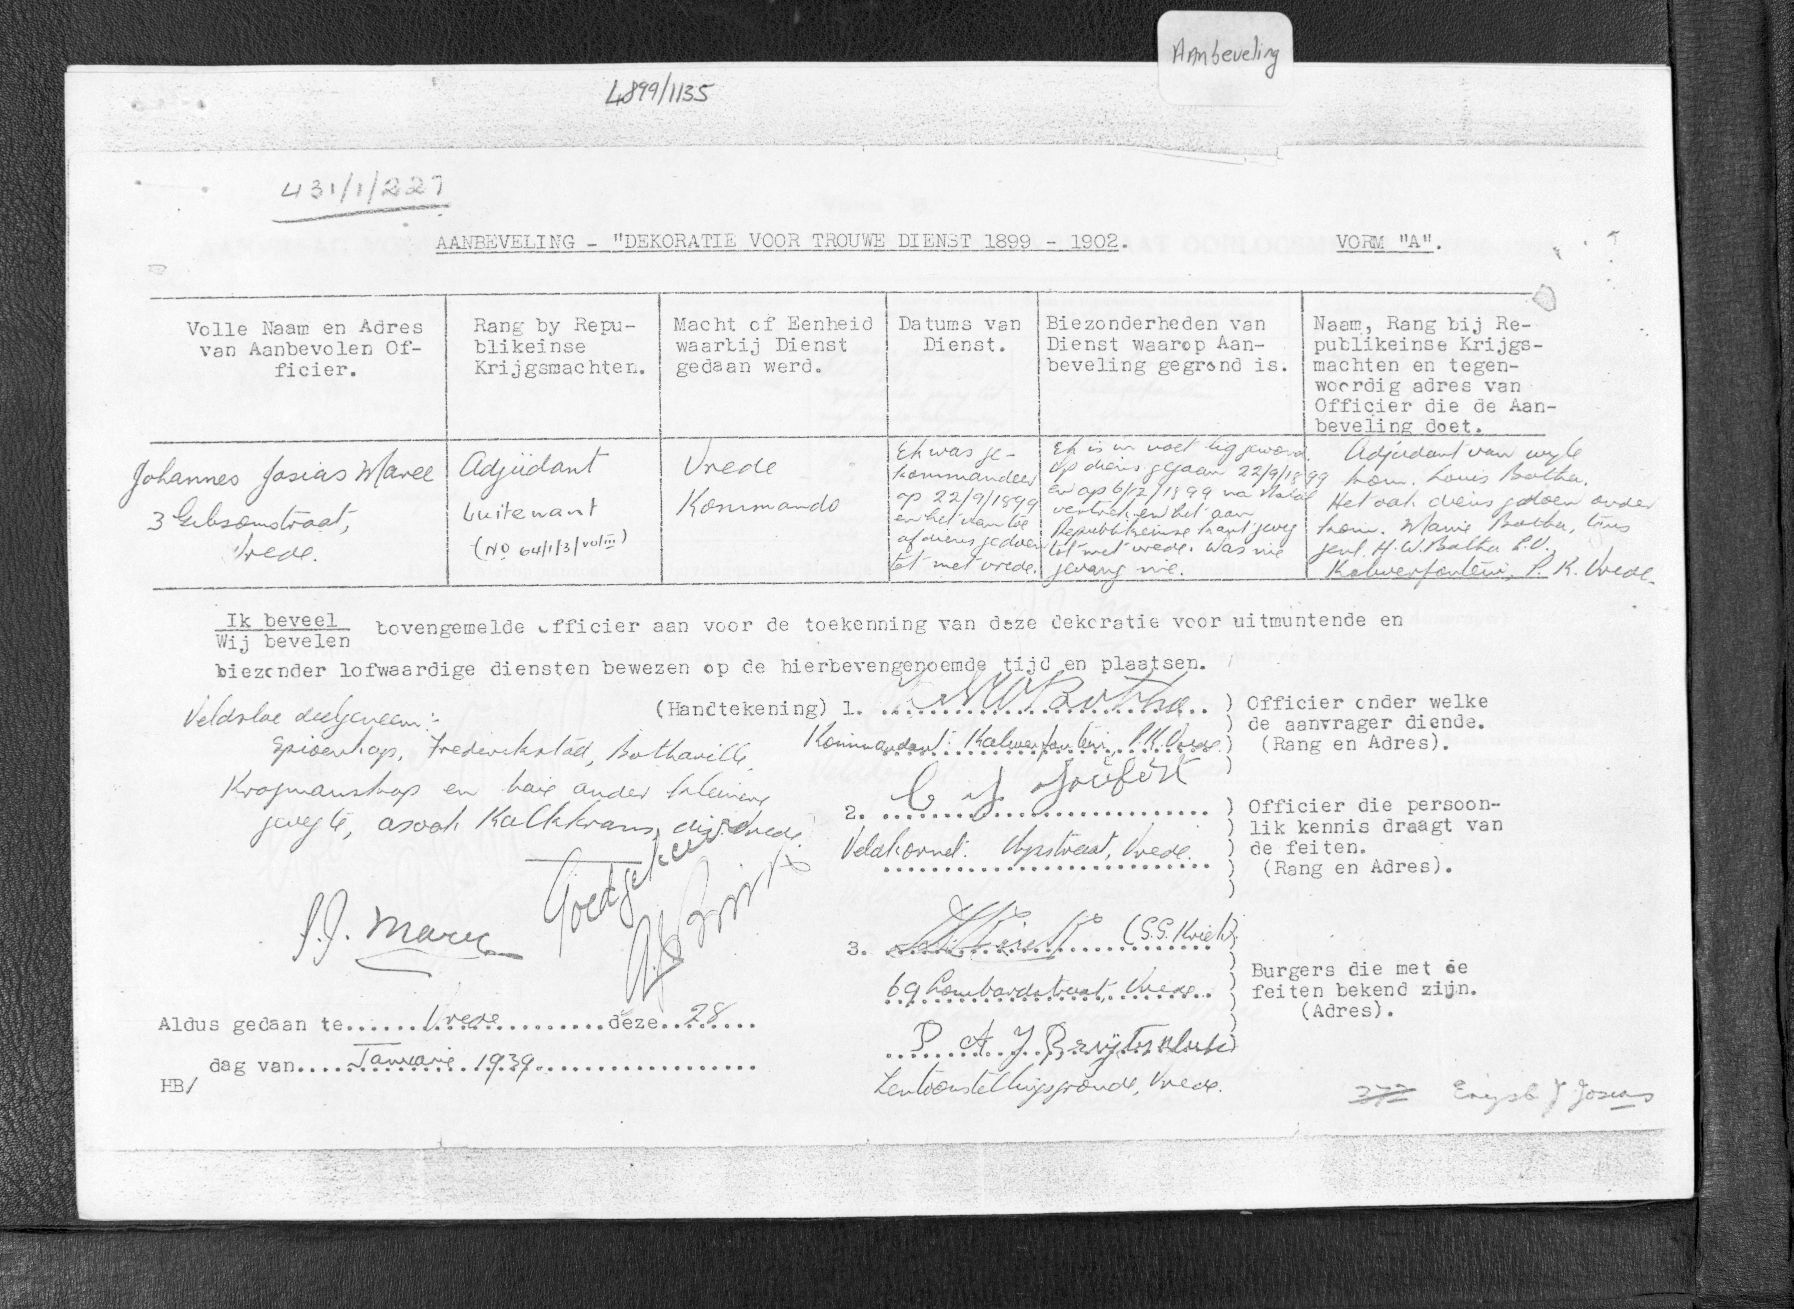 Aanbeveling
4899/1135
431/1/227
AANBEVELING - "DEKORATIE VOOR TROUWE DIENST 1899 - 1902.
VORM "A".
Volle Naam en Adres
van Aanbevolen Of-
ficier.
Rang by Repu-
blikeinse
Krijgsmachten.
Macht of Eenheid
waarbij Dienst
gedaan werd.
Datums van
Dienst.
Biezonderheden van
Dienst waarop Aan-
beveling gegrond is.
Naam, Rang bij Re-
publikeinse Krijgs-
machten en tegen-
woordig adres van
Officier die de Aan-
beveling doet.
Johannes Josias Maree
3 Gibsonstraat,
Vrede.
Adjudant
Luitenant
(No 64/1/3/vol III)
Vrede
Kommando
Ek was ge-
kommandeer
op 22/9/1899
en het van toe
af diens gedoen
tot met vrede.
Ek is in
op diens gegaan 22/9/1899
en op 6/12/1899 na Natal
vertrek en het aan
Republikeinse kant geveg
tot met vrede. Was nie
gevang nie.
Adjudant van wyle
kom. Louis Botha.
Het ook diens gedoen onder
kom. Manie Botha,
genl. H.W. Botha L.V.
Kalwerfontein, P.K. Vrede.
Ik beveel
Wij bevelen
bovengemelde officier aan voor de toekenning van deze dekoratie voor uitmuntende en
biezonder lofwaardige diensten bewezen op de hierbevengenoemde tijd en plaatsen.
Veldslae deelgeneem:-
Spioenkop, Frederikstad, Bothaville,
Krogmanskop en baie ander kleinere
gevegte, asook Kalkkrans, dist Vrede.
J.J. Maree
Goedgekeur
(Handtekening) 1. HW Botha
Kommandant: Kalwerfontein, P.K. Vrede
) Officier onder welke
) de aanvrager diende.
) (Rang en Adres).
)
2. C J Joubert
Veldkornet. Vrede.
) Officier die persoon-
) lik kennis draagt van
) de feiten.
) (Rang en Adres).
)
3. (S.S. Kriek)
69 Lombardstraat, Vrede
P A J Bruijtenbach
Tentoonstellingsgronde, Vrede.
Burgers die met de
feiten bekend zijn.
(Adres).
Aldus gedaan te Vrede deze 28
dag van Januarie 1939
HB/
377
J Josias